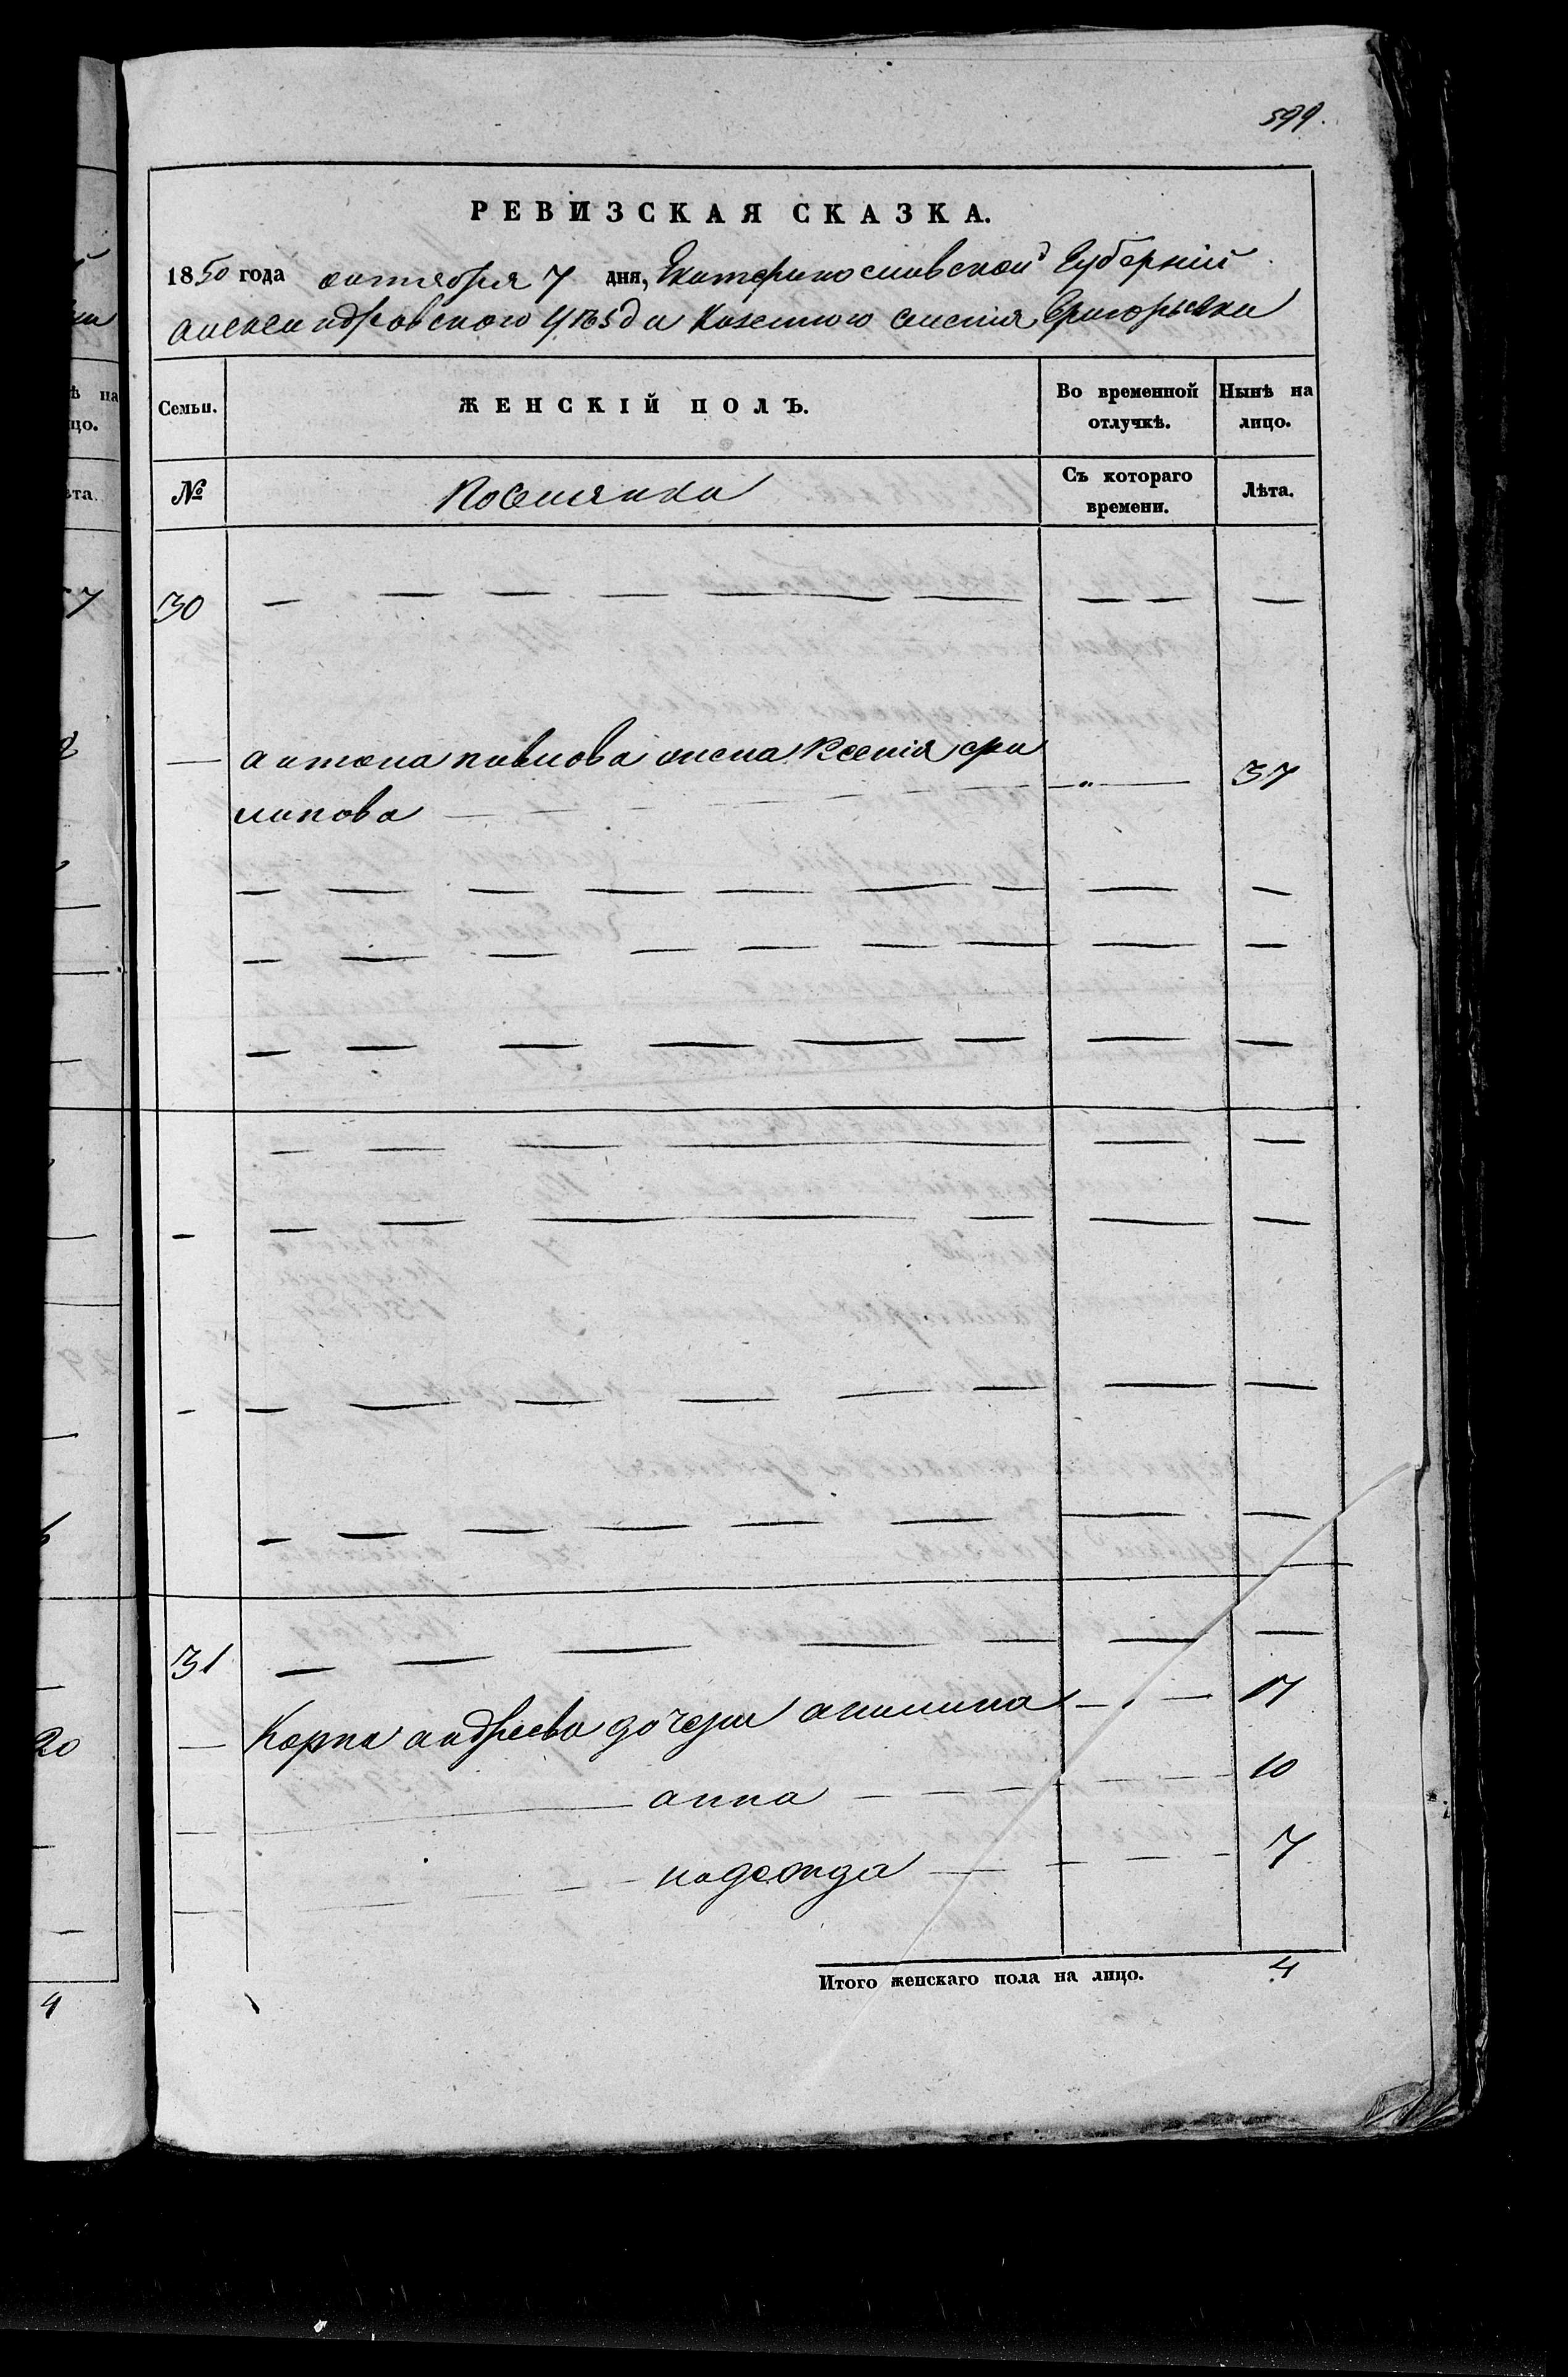 599.
РЕВИЗСКАЯ СКАЗКА.
1850 года октября 7 дня, Екатеринославской Губерний
александровского уѣзда Казенного селенія Григорьевки
Семьи. ЖЕНСКІЙ ПОЛЪ. Во временной отлучкѣ. Нынѣ на лицо.
№ Поселянка Съ котораго времени. Лѣта.
30 — — — — — — — —
— антона павлова жена Ксенія фи — „ — 37
липова — — —
31 — — — — — — —
— Карпа андреева дочери акилина — „ — 17
— анна — — — 10
— надежда — — — 7
Итого женскаго пола на лицо. 4
ѣ на
цо.
ѣта.
20
4